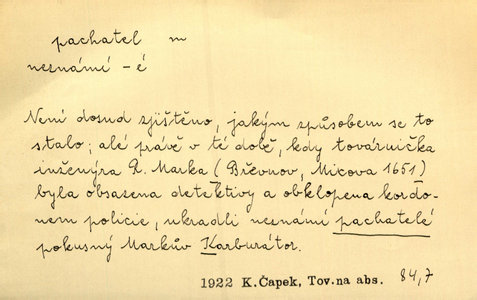 pachatel m
neznámí -é
Není dosud zjištěno, jakým způsobem se to
stalo; ale právě v té době, kdy továrnička
inženýra R. Marka (Břevnov, Mixova 1651)
byla obsazena detektivy a obklopena kordo-
nem policie, ukradli neznámí pachatelé
pokusný Markův Karburátor.
1922 K.Čapek, Tov.na abs. 84,7